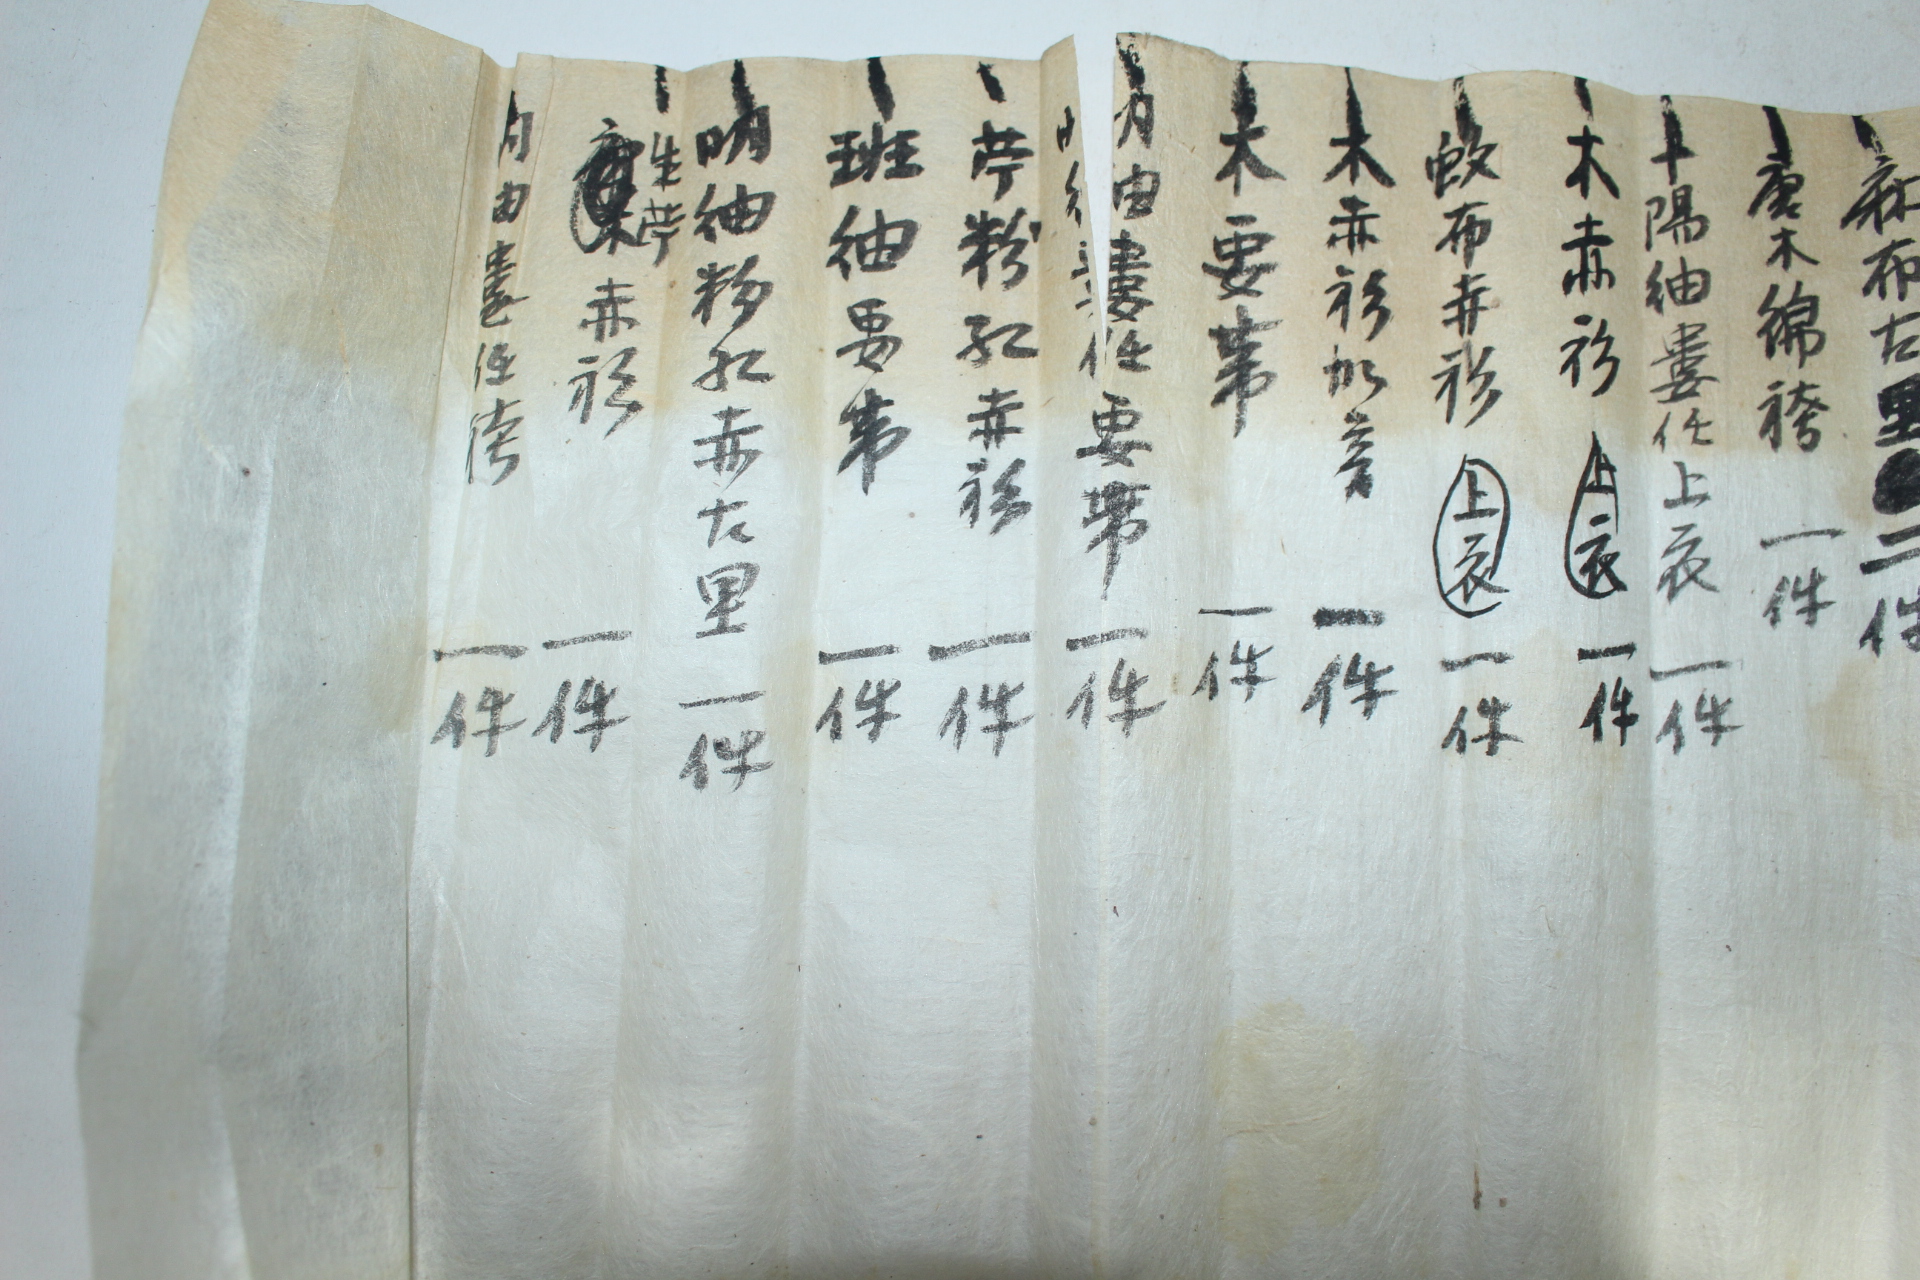 麻布古里二件
唐木綿袴一件
陽紬婁任上衣一件
木赤衫上衣一件
蚊布赤衫上衣一件
木赤衫加着一件
木要帶一件
紬婁任要帶一件
苧粉紅赤衫一件
班紬要帶一件
明紬粉紅赤古里一件
生苧赤衫一件
婁任袴一件